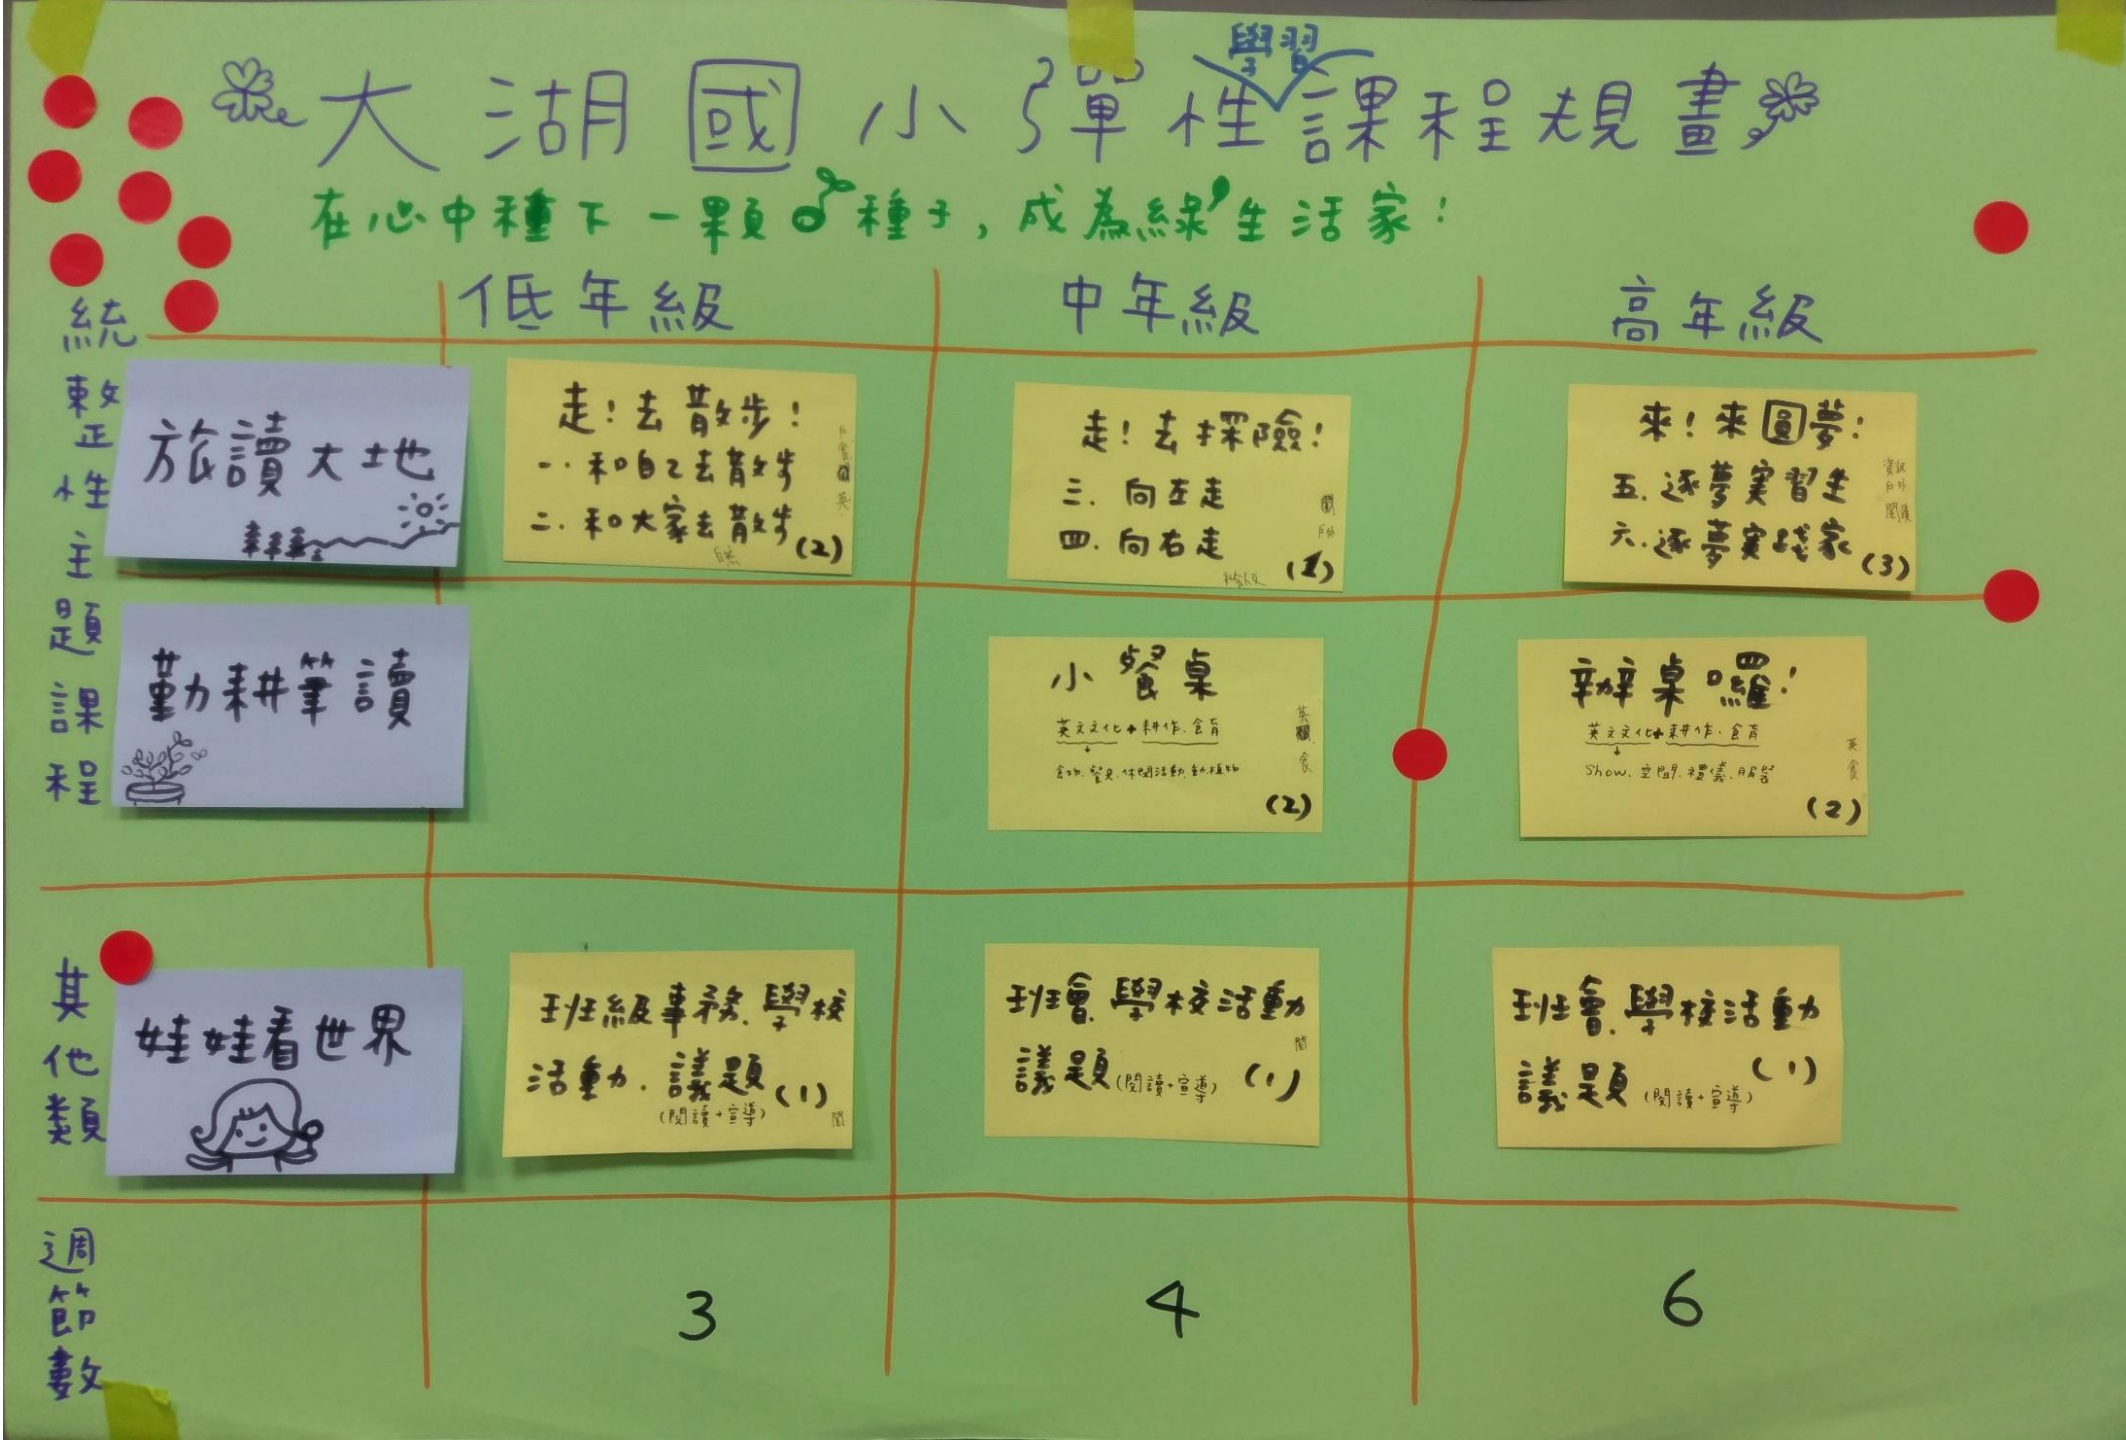 大湖國小彈性學習課程規畫
在心中種下一顆種子,成為綠生活家!
低年級 中年級 高年級
統整性主題課程
旅讀大地
走!去散步!
一.和自己去散步
二.和大家去散步(2)
走!去探險!
三.向左走
四.向右走
(1)
來!來圓夢!
五.逐夢實習生
六.逐夢實踐家(3)
資訊
戶外
閱讀
勤耕筆讀
小餐桌
英文文化+耕作.食育
食物.餐具.休閒活動.動植物
(2)
辦桌囉!
英文文化+耕作.食育
Show.空間.禮儀.服裝
英
食
(2)
其他類
娃娃看世界
班級事務.學校
活動.議題(1)
(閱讀+宣導)
閱
班會.學校活動
議題(閱讀+宣導)(1)
閱
班會.學校活動
議題(閱讀+宣導)(1)
週節數
3 4 6